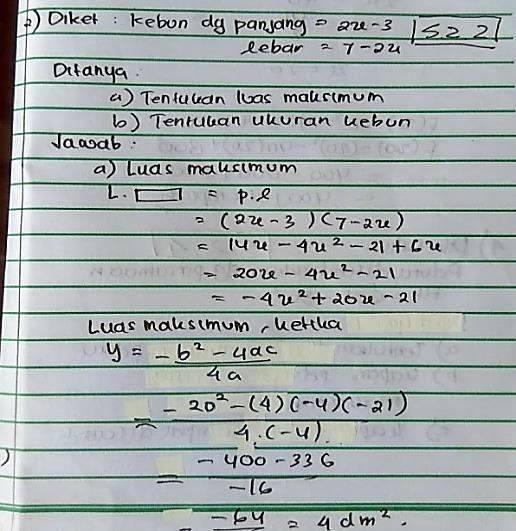 2) Diket : kebun dg panjang = 2x-3 | S22 |
lebar = 7-2x
Ditanya :
a) Tentukan luas maksimum
b) Tentukan ukuran kebun
Jawab :
a) Luas maksimum
L. ▭ = p.l
= (2x-3)(7-2x)
= 14x - 4x² - 21 + 6x
= 20x - 4x² - 21
= -4x² + 20x - 21
Luas maksimum, ketika
y = -b² - 4ac / 4a
= - 20² - (4)(-4)(-21) / 4.(-4)
= - 400 - 336 / -16
= -64 = 4 dm².